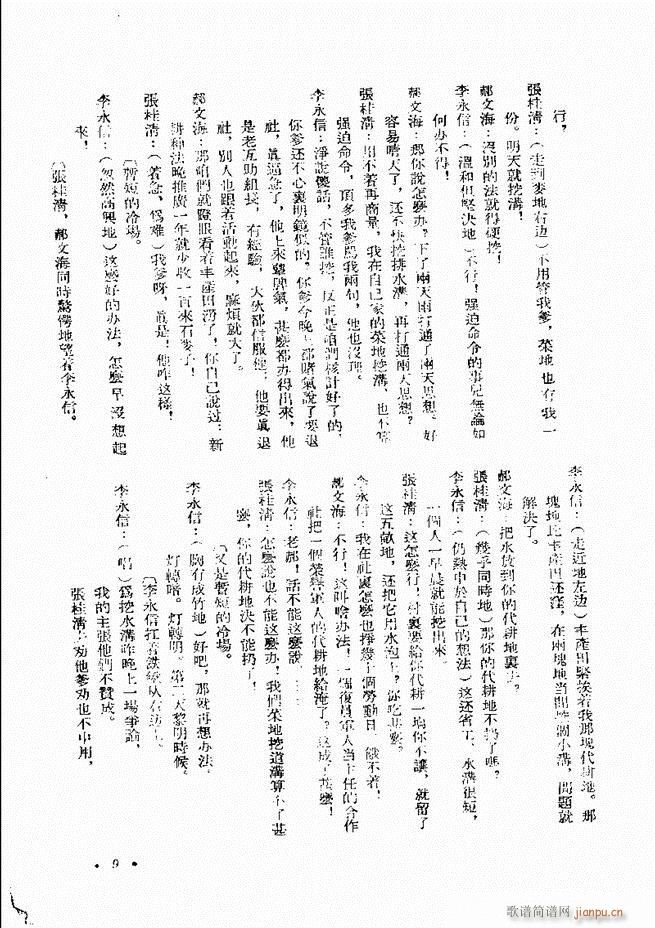 行，
張桂清：（走到麦地右边）不用管我爹，菜地也有我一
份。明天就挖溝！
郝文海：沒別的法就得硬挖！
李永信：（溫和但堅决地）不行！强迫命令的事兒無論如
何办不得！
郝文海：那你説怎麽办？下了兩天雨打通了兩天思想。好
容易晴天了，还不快挖排水溝，再打通兩天思想？
張桂清：用不着再商量，我在自己家的菜地挖溝，也不算
强迫命令，頂多我爹罵我兩句，他也沒理。
李永信：淨說傻話，不管誰挖，反正是咱們核計好了的，
你爹还不心裏明鏡似的。你爹今晚上都賭氣說了要退
社，眞逼急了，他上來犟脾氣，甚麽都办得出來，他
是老互助組長，有經驗，大伙都信服他，他要眞退
社，別人也跟着活動起來，麻煩就大了。
郝文海：那咱們就瞪眼看着丰產田澇了！你自己說过：新
耕种法晚推廣一年就少收一百來石麦子！
張桂清：（着急，爲难）我爹呀，眞是！他咋这樣！
〔暫短的冷場。
李永信：（忽然高興地）这麽好的办法，怎麽早沒想起
來！
〔張桂清，郝文海同時驚愕地望着李永信。
李永信：（走近地左边）丰產田緊挨着我那塊代耕地。那
塊地比丰產田还窪，在兩塊地当間挖個小溝，問題就
解決了。
郝文海：把水放到你的代耕地裏去。
張桂清：（幾乎同時地）那你的代耕地不扔了嗎？
李永信：（仍熱中於自己的想法）这还省工，水溝很短，
一個人一早晨就能挖出來。
張桂清：这怎麽行！社裏要給你代耕一垧你不讓，就留了
这五畝地，还把它用水泡上？你吃甚麽。
李永信：我在社裏怎麽也掙幾十個勞動日，餓不着！
郝文海：不行！这叫啥办法！一個復員軍人当主任的合作
社把一個榮譽軍人的代耕地給淹了？这成了甚麽！
李永信：老郝！話不能这麽說……
張桂清：怎麽說也不能这麽办！我們菜地挖道溝算不了甚
麽，你的代耕地決不能扔了！
〔又是暫短的冷場。
李永信：（胸有成竹地）好吧，那就再想办法。
灯轉暗。灯轉明。第二天黎明時候。
〔李永信扛着鉄鍬从右边上。
李永信：（唱）爲挖水溝昨晚上一場爭論，
我的主張他們不贊成。
張桂清主动他爹劝也不中用，
• 9 •
歌谱简谱网 jianpu.cn